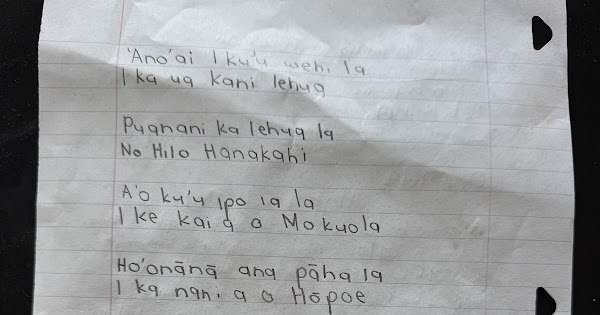 'Ano'ai I ku'u wehi la
I ka ua kani lehua
Puanani ka lehua la
No Hilo Hanakahi
A'o ku'u ipo ia la
I ke kai a o Mokuola
Ho'onānā ana pāha la
I ka nani a o Hōpoe